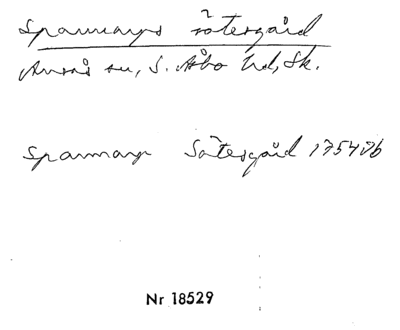 Spannarps sätergård
Ausås sn, S. Åsbo hd, Sk.
Spannarp Sätesgård 1754 Db
Nr 18529